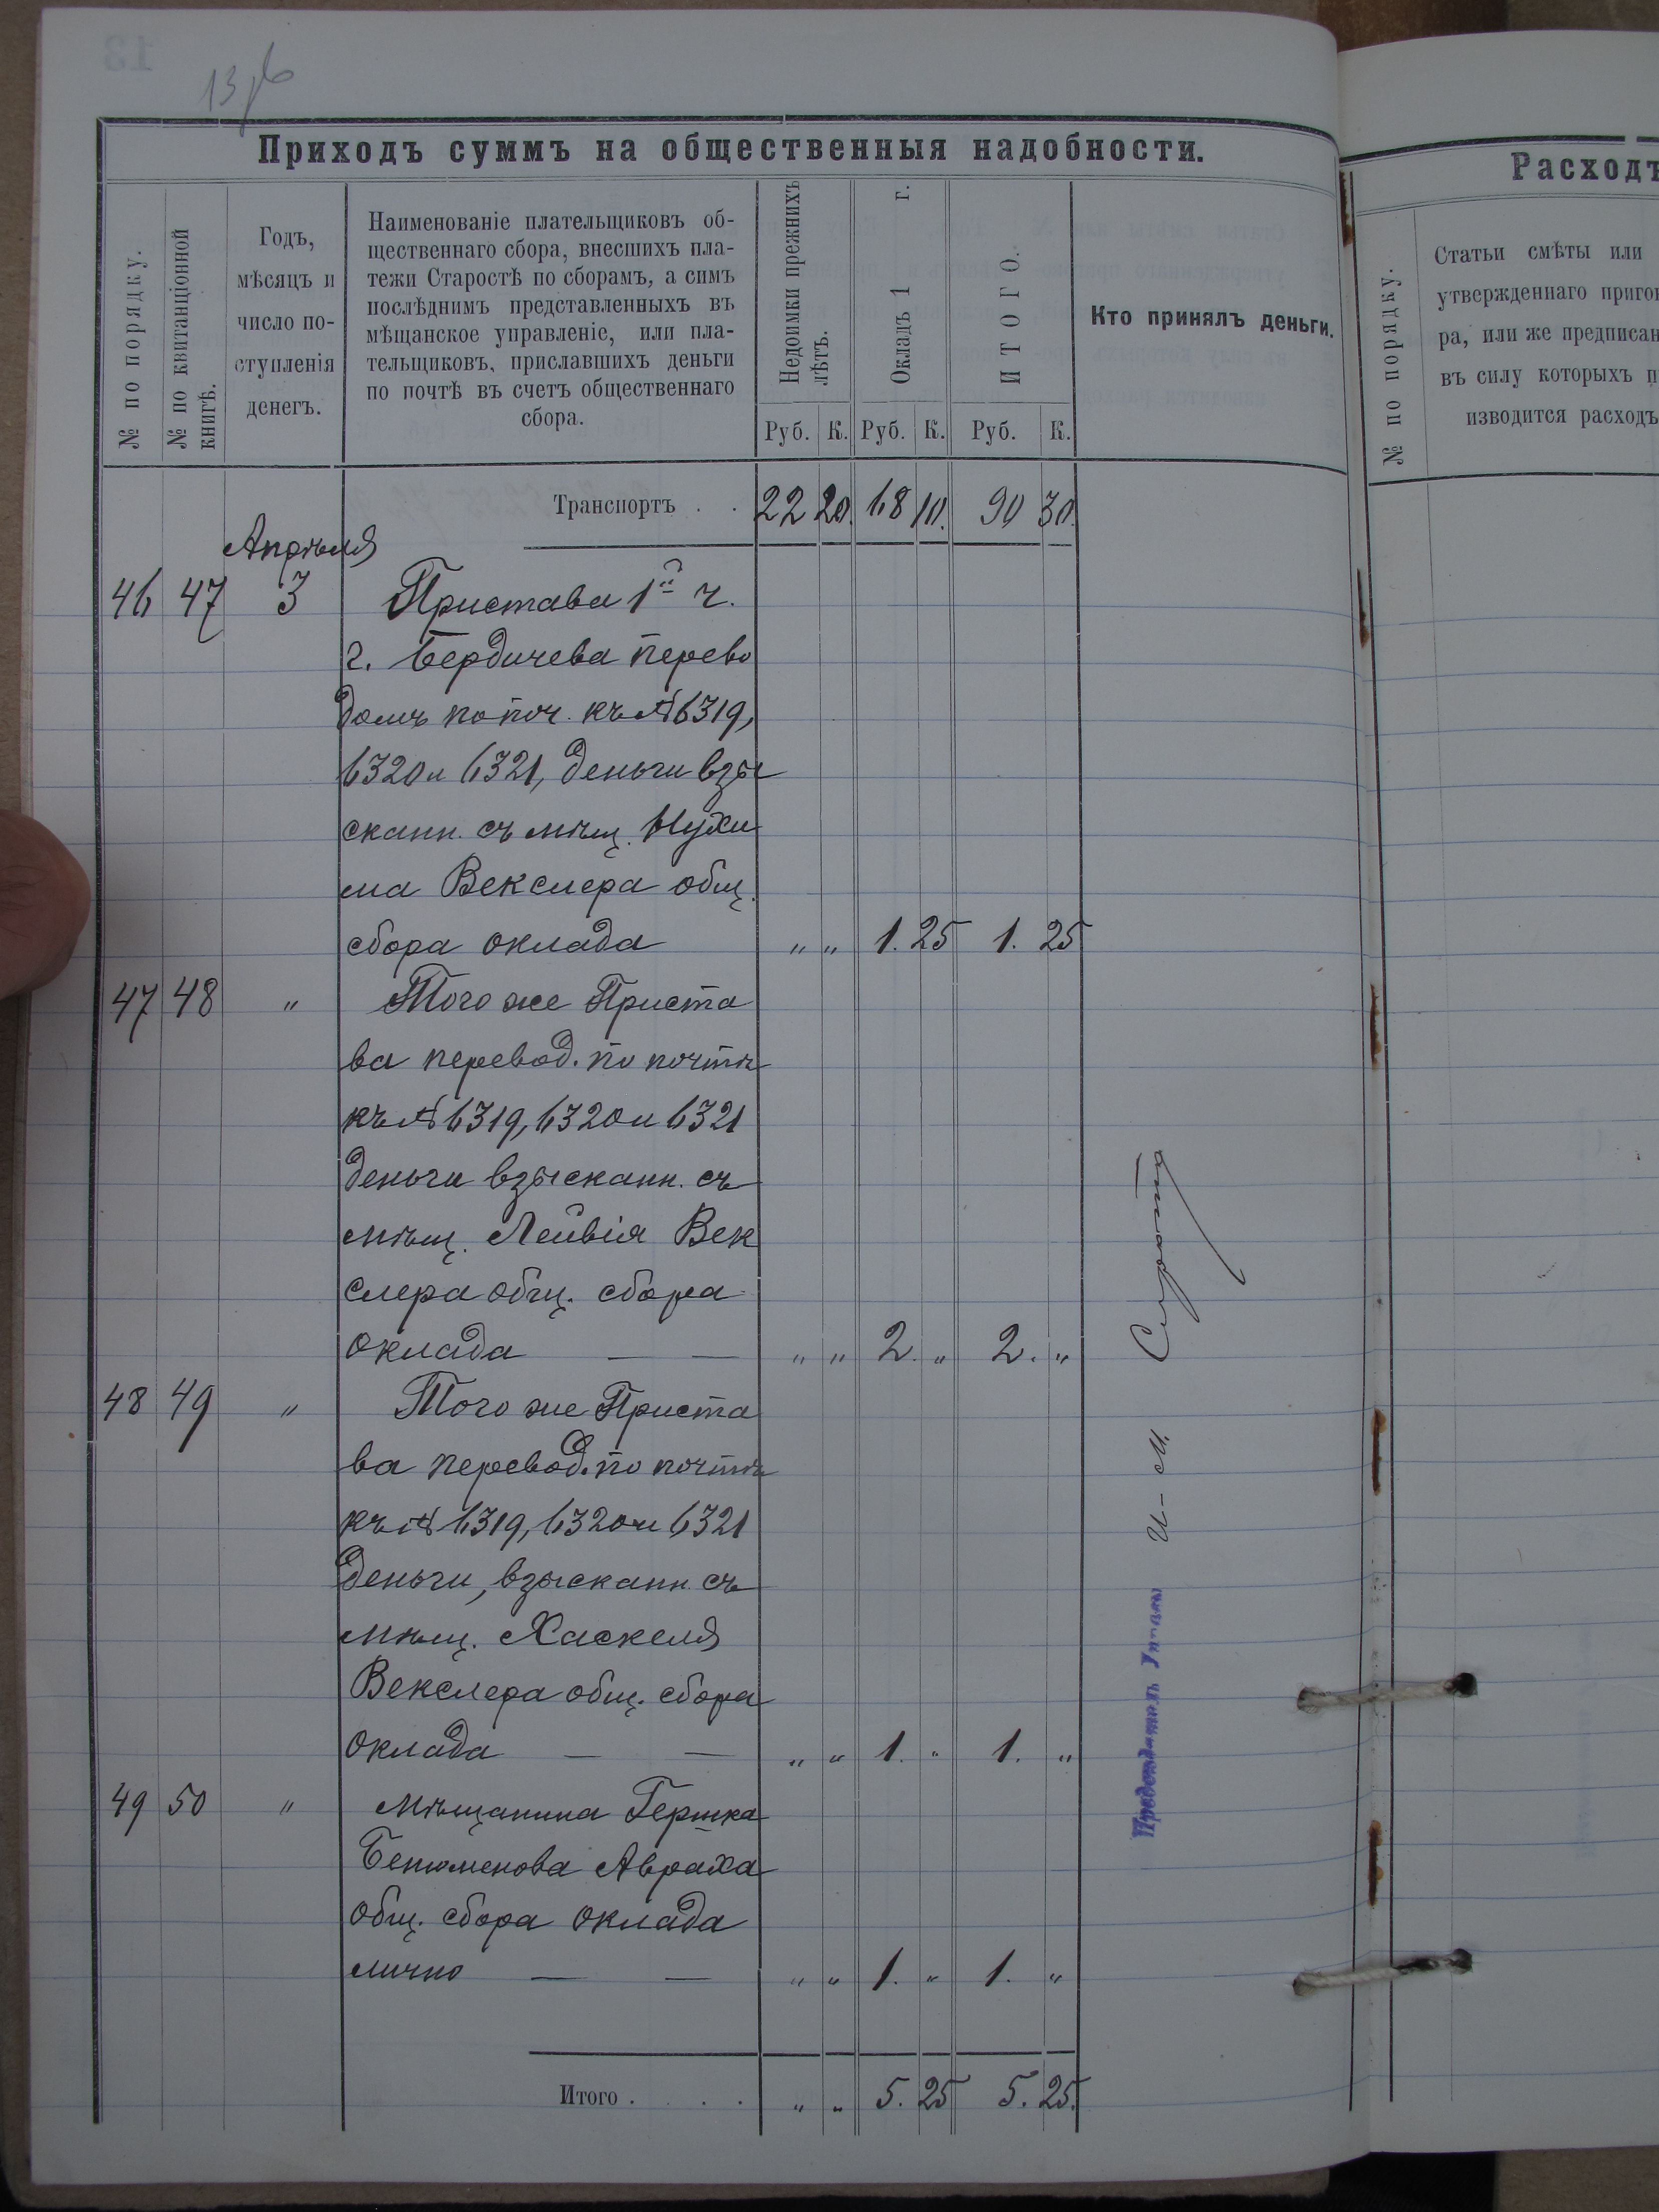 13
Приходъ суммъ на общественныя надобности.
№ по порядку.
№ по квитанціонной
книгѣ.
Годъ,
мѣсяцъ и
число по-
ступленія
денегъ.
Наименованіе плательщиковъ об-
щественнаго сбора, внесшихъ пла-
тежи Старостѣ по сборамъ, а симъ
послѣднимъ представленныхъ въ
мѣщанское управленіе, или пла-
тельщиковъ, приславшихъ деньги
по почтѣ въ счетъ общественнаго
сбора.
Недоимки прежнихъ
лѣтъ.
Окладъ 1 г.
ИТОГО.
Кто принялъ деньги.
Руб. К. Руб. К. Руб. К.
Транспортъ . . 22 20. 68 10. 90 30.
Апрѣля
46 47 3 Пристава 1й ч.
г. Бердичева перево
домъ по поч. къ № 6319,
6320 и 6321, деньги взы
сканн. съ мѣщ. Нухи
ма Векслера общ.
сбора оклада „ „ 1. 25 1. 25
47 48 „ Того же Приста
ва перевод. по почтѣ
къ № 6319, 6320 и 6321
деньги взысканн. съ
мѣщ. Лейвія Век
слера общ. сбора
оклада — — „ „ 2. „ 2. „
48 49 „ Того же Приста
ва перевод. по почтѣ
къ № 6319, 6320 и 6321
деньги, взысканн. съ
мѣщ. Хаскеля
Векслера общ. сбора
оклада — — „ „ 1. „ 1. „
49 50 „ Мѣщанина Гершка
Бенюменова Авраха
общ. сбора оклада
лично — — „ „ 1. „ 1. „
Итого . . . . „ „ 5. 25 5. 25.
И - М.
Расходъ
№ по порядку.
Статьи смѣты или
утвержденнаго пригов
ра, или же предписан
въ силу которыхъ п
изводится расходъ